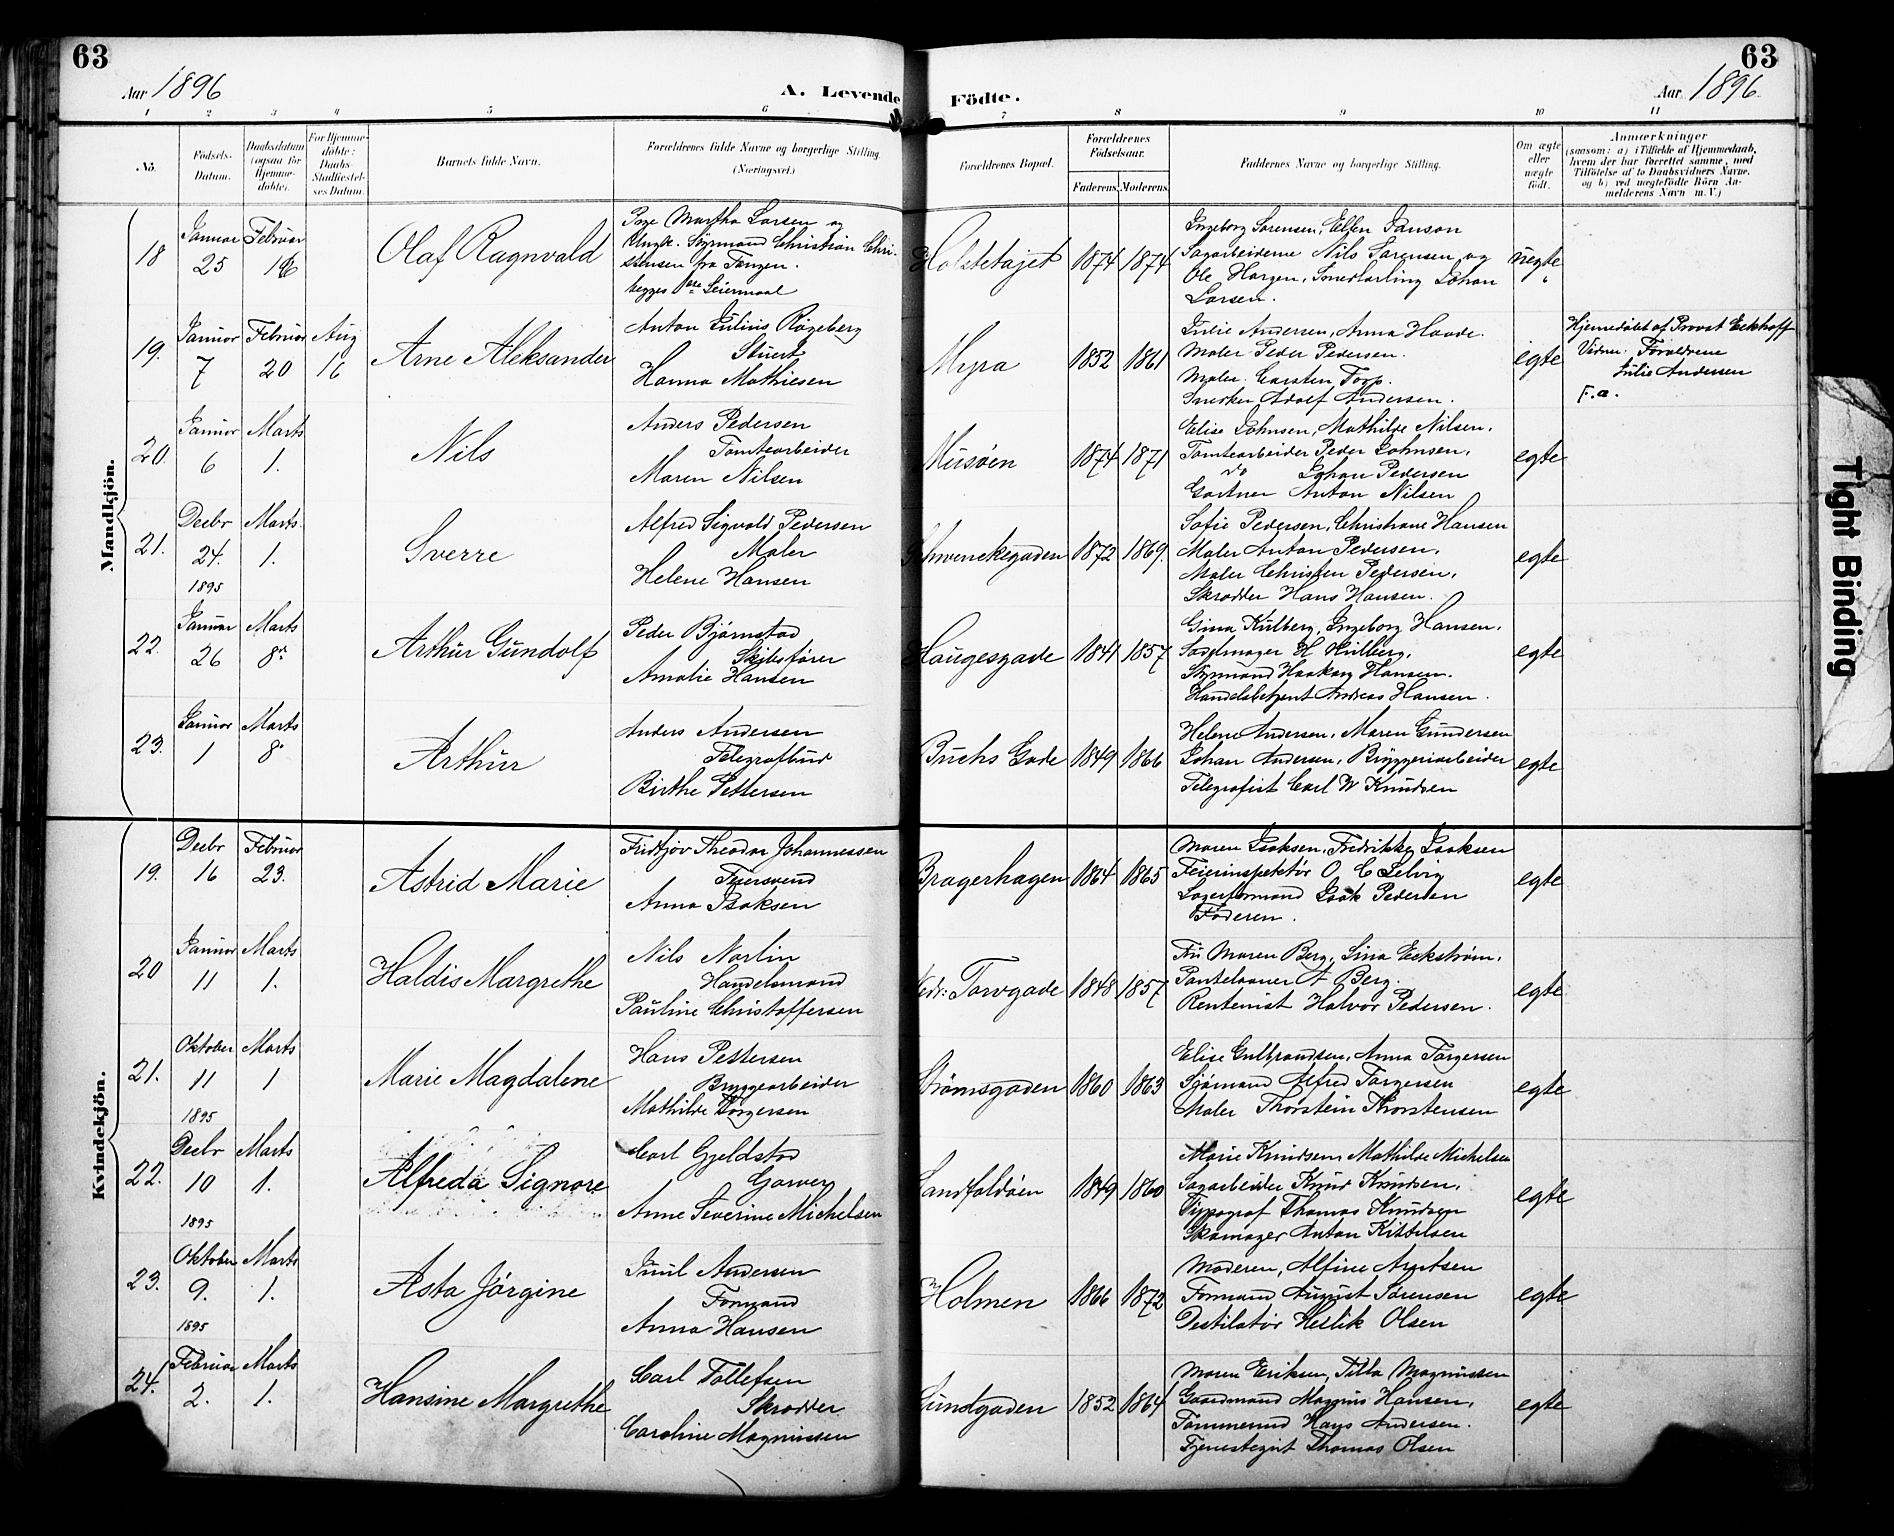 63
63
Aar 1896
A. Levende Födte.
Aar 1896.
1 2 3 4 5 6 7 8 9 10 11
No. Födsels-Datum. Daabsdatum (ogsaa for Hjemmedöbte). For Hjemmedöbte: Daabs Stadfæstelses Datum. Barnets fulde Navn. Forældrenes fulde Navne og borgerlige Stilling (Næringsvei.) Forældrenes Bopæl. Forældrenes Födselsaar. Faderens. Moderens. Faddernes Navne og borgerlige Stilling. Om ægte eller uægte födt. Anmærkninger
(saasom: a) i Tilfælde af Hjemmedaab, hvem der har forrettet samme, med Tilföielse af to Daabsvidners Navne, og b) ved uegtefödte Börn Anmelderens Navn m. V.)
Mandkjön.
18 Januar 25 Februar 16 Olaf Ragnvald
Pige Martha Larsen og
Ungk. Styrmand Christian Christensen fra Tangen.
begges 1ste Leiermaal
Holstetajet 1874 1874
Ingeborg Sørensen, Ellen Jansen
Sagarbeiderne Nils Sørensen og
Ole Hargen, Smedlærling Johan
Larsen.
uegte
19. Januar 7 Februar 20 Aug 16 Arne Aleksander
Anton Julius Røgeberg
Stuert
Hanna Mathiesen
Myra 1852 1861
Julie Andersen, Anna Haave.
Maler Peder Pedersen.
Maler Carsten Torp.
Snerker Adolf Andersen.
egte
Hjemedøbt af Provst Eckhoff
Vidner: Forældrene
Julie Andersen
F.a.
20. Januar 6 Marts 1. Nils
Anders Pedersen
Tomtearbeider
Maren Nilsen
Musøen 1874 1871
Elise Johnsen, Mathilde Nilsen.
Tomtearbeider Peder Johnsen,
do Johan Pedersen
Gartner Anton Nilsen
egte
21. Decbr 24. 1895 Marts 1. Sverre
Alfred Sigvald Pedersen
Maler
Helene Hansen
Schwenckegaden 1872 1869.
Sofie Pedersen, Christiane Hansen
Maler Anton Pedersen,
Maler Christen Pedersen,
Skrædder Hans Hansen.
egte
22. Januar 26 Marts 8de Arthur Gundolf
Peder Bjørnstad
Skibsfører
Amalie Hansen
Haugesgade 1841 1857
Gina Kulberg, Ingeborg Hansen,
Sadelmager H Kulberg,
Styrmand Haakon Hansen.
Handelsbetjent Andreas Hansen.
egte
23. Januar 1 Marts 8. Arthur
Anders Andersen
Telegrafbud
Birthe Pettersen
Buchs Gade 1849 1866
Helene Andersen, Maren Gundersen
Johan Andersen, Bryggeriarbeider
Telegrafist Carl W Knudsen
egte
Kvindekjön.
19. Decbr 16 Februar 23. Astrid Marie
Fridtjov Theodor Johannessen
Feiersvend
Anna Isaksen
Bragerhagen 1864 1865
Maren Isaksen, Fredrikke Isaksen
Feierinspektør O C Selvig
Lagerformand Isak Pedersen
Faderen.
egte
20 Januar 11 Marts 1. Haldis Margrethe
Nils Norlin
Handelsmand
Pauline Christoffersen
Nedr: Torvgade 1848 1857
Fru Maren Berg, Lina Eckstrøm,
Pantelaaner A Berg.
Rentenist Halvor Pedersen.
egte
21. Oktober 11 1895 Marts 1 Marie Magdalene
Hans Pettersen
Bryggearbeider
Mathilde Torgersen
Strømsgaden 1860 1863
Elise Gulbrandsen, Anna Torgersen
Sjømand Alfred Torgersen
Maler Thorstein Thorstensen
egte
22. Decbr 10 1895 Marts 1. Alfreda Signore
Carl Gjeldstad
Garver
Anne Severine Michelsen
Landfaldøen 1849 1860
Marie Knudsen, Mathilde Michelsen
Sagarbeider Knud Knudsen,
Typograf Thomas Knudsen
Skomager Anton Kittelsen
egte
23. Oktober 9. 1895 Marts 1. Asta Jørgine
Juul Andersen
Formand
Anna Hansen
Holmen 1866 1872
Moderen, Alfine Arntsen
Formand August Sørensen
Destilatør Hellik Olsen
egte
24. Februar 2. Marts 1. Hansine Margrethe
Carl Tollefsen
Skrædder
Caroline Magnussen
Lundgaden 1852 1864
Maren Eriksen, Tilla Magnussen
Gaardmand Magnus Hansen,
Tømmermd Hans Andersen.
Tjenestegut Thomas Olsen
egte
Tight Binding